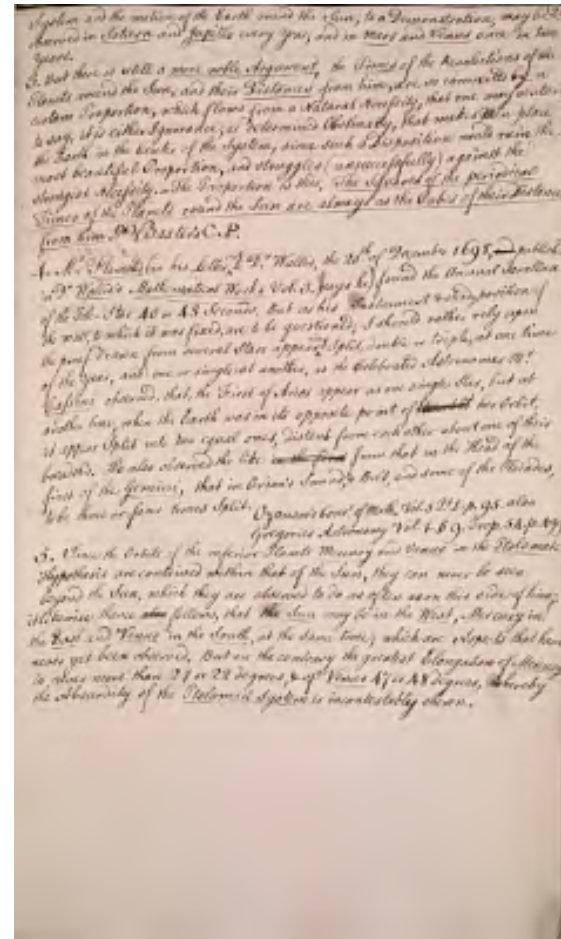 System and the motion of the Earth round the Sun, to a Demonstration, may be
observed in Saturn and Jupiter every year, and in Mars and Venus once in two
years.
3. But there is still a more noble Argument, the Times of the Revolutions of the
Planets round the Sun, and their Distances from him, are so connected by a
certain Proportion, which flows from a Natural Necessity, that one may venture
to say, it is either Ignorance, or determined Obstinacy, that makes Men place
the Earth in the Center of the System, since such a Disposition would ruin the
most beautiful Proportion, and struggles (unsuccessfully) against the
strongest Necessity. The Proportion is this, The Squares of the periodical
Times of the Planets round the Sun are always as the Cubes of their Distances
from him. C.P.
4. Mr. Flamsteed in his Letter to Dr. Wallis, the 20th of December 1698, publish'd
in Dr Wallis's Mathematical Works Vol. 3. (says he) found the Annual Parallax
of the Pole-Star 40 or 48 Seconds, But as his Instrument and position of
the wall, to which it was fixed, are to be questioned; I should rather rely upon
the proof drawn from several Stars Split, double or triple, at one time
of the Year, and one or single at another, as the Celebrated Astronomer Mr
Cassini observed, that, the First of Aries appear as one single Star, but at
another time, when the Earth was in its opposite point of her Orbit,
it appear Split into two equal ones, distant from each other about one of their
breadths. He also observed the like from that in the Head of the
first of the Gemini, that in Orion's Sword, & Belt, and some of the Pleiades,
to be three or four times Split.
Ozanam's of Math. Vol. 5 p. 95. also
Gregories Astronomy Vol. 1. 69. Prop. 54. p.
5. Since the Orbits of the inferior Planets Mercury and Venus in the Ptolemaic
Hypothesis are contained within that of the Sun, they can never be seen
beyond the Sun, which they are observed to do as often as on this side of him;
likewise thence follows, that the Sun may be in the West, Mercury in
the East and Venus in the South, at the same time; which are that have
never yet been observed. But on the contrary the greatest Elongation of Mercury
is never more than 27 or 28 degrees, & of Venus 47 or 48 degrees, whereby
the Absurdity of the Ptolomaic System is incontestably shewn.